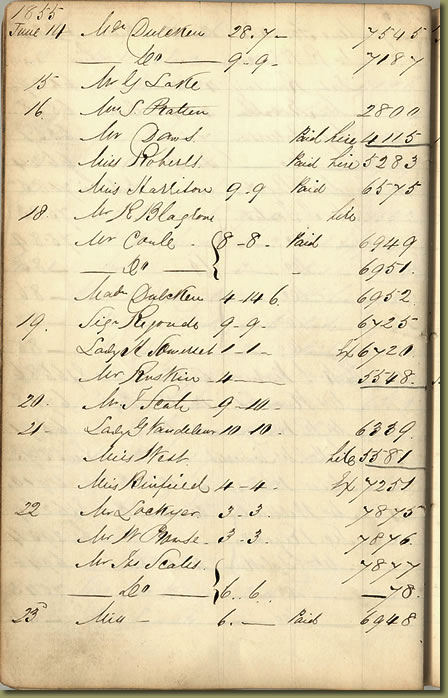 1855
June 14 Mdm Dulcken 28.7- 7545
Do 9-9- 7187
15 Mr G Lake
16. Mrs S. 2800
Mr Daws. Paid hire 4115
Miss Roberts Paid hire 5283
Miss Harrison 9-9 Paid 6575
18 Mr R Blagrove
Mr Coule - 8-8- Paid 6949
Do - 6951.
Madm Dulcken 4-14 6 6952
19. Sigr Regondi 9-9- 6725
Lady A Somerset 1-1- 6720
Mr Ruskin 4 5548.
20. Mr T Scates 9-10-
21 Lady G Vandeleur 10-10- 6339.
Miss West 5581
Miss Binfield 4-4- 7251
22 Mr Lockyer 3-3. 7875
Mr W Prowse 3-3. 7876.
Mr Jos Scates 7877
Do 6..6.. 78.
23 Miss - 6.- Paid 6948